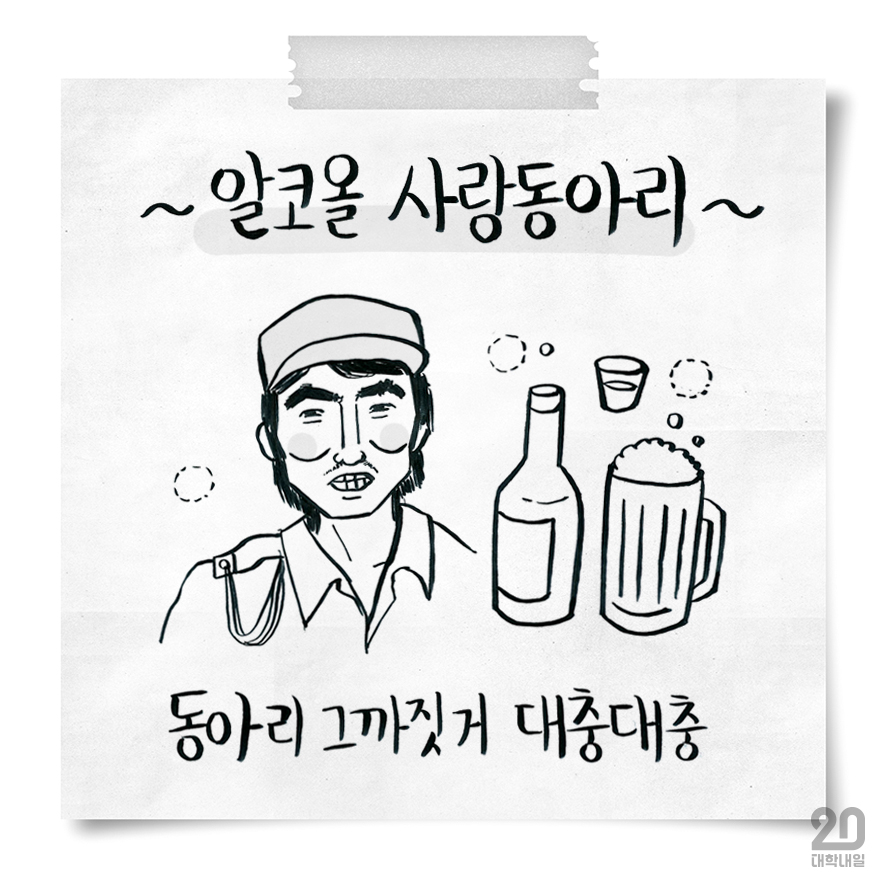 ~ 알코올 사랑동아리 ~
동아리 그까짓거 대충대충
20
대학내일